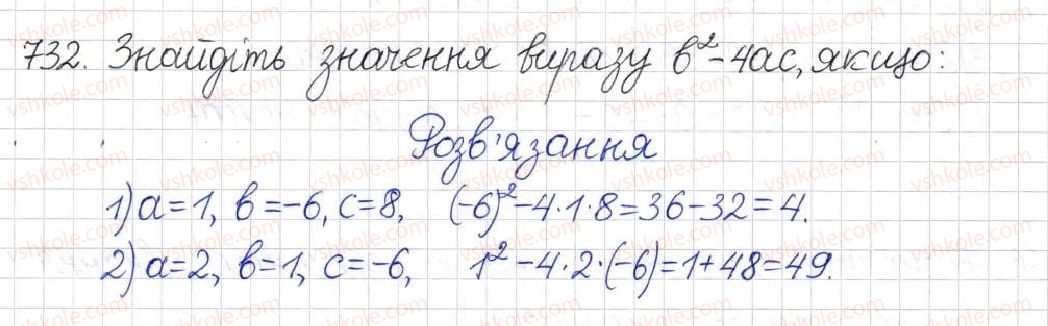 732. Знайдіть значення виразу в²-4ас, якщо:
Розв'язання
1) а=1, в=-6, с=8, (-6)²-4·1·8=36-32=4.
2) а=2, в=1, с=-6, 1²-4·2·(-6)=1+48=49.